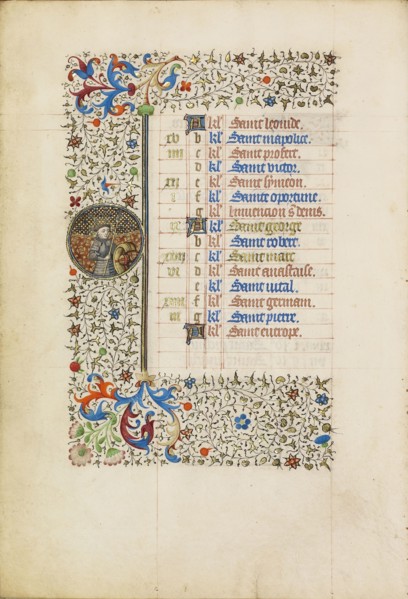 A kl' Saint leonide.
xv b kl' Saint mapolice.
iiii c kl' Saint profect.
d kl' Saint victor.
xii e kl' Saint symeon.
i f kl' Saint oportune.
g kl' Inuencion s' denis.
ix A kl' Saint george
b kl' Saint robert.
xvii c kl' Saint marc
vi d kl' Saint anastaise.
e kl' Saint uital.
xiiii f kl' Saint germain.
iii g kl' Saint pierre.
A kl' Saint eutrope.